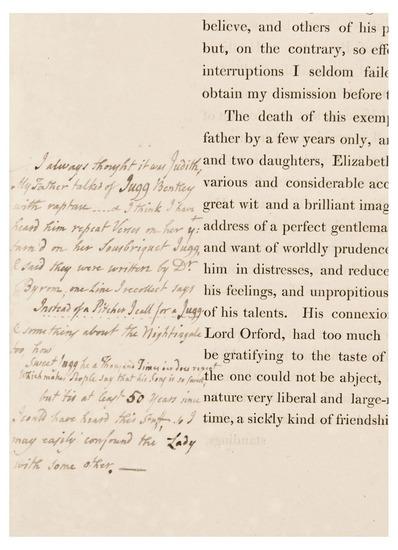 believe, and others of his p
but, on the contrary, so effe
interruptions I seldom faile
obtain my dismission before t
The death of this exemp
father by a few years only, an
and two daughters, Elizabeth
various and considerable acc
great wit and a brilliant imag
address of a perfect gentlema
and want of worldly prudence
him in distresses, and reduce
his feelings, and unpropitious
of his talents. His connexio
Lord Orford, had too much
be gratifying to the taste of
the one could not be abject,
nature very liberal and large-
time, a sickly kind of friendshi
I always thought it was Judith,
My Father talks of Jugg Bentley
with rapture I think I have
heard him repeat Verses on her yt:
turn'd on her Sousbriquet Jugg,
& said they were written by Dr
Byrom, one Line I recollect says
Instead of a Pitcher I call for a Jugg
& something about the Nightingale
too, how
Sweet Jugg he a Thousand Times does repeat
Which makes People say that his Song is so sweet,
but tis at least 50 Years since
I could have heard this Stuff, So I
may easily confound the Lady
with some other.